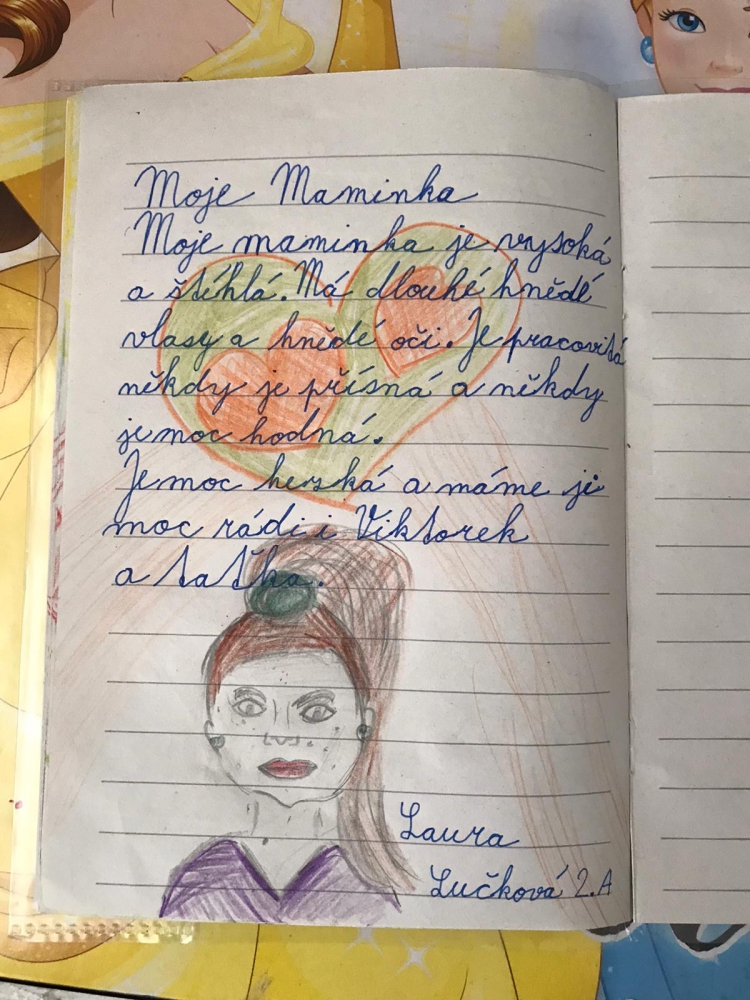 Moje Maminka
Moje maminka je vysoká
a štíhlá. Má dlouhé hnědé
vlasy a hnědé oči. Je pracovitá
někdy je přísná a někdy
je moc hodná.
Je moc heská a máme ji
moc rádi i Viktorek
a taťka.
Laura
Lučková 2.A